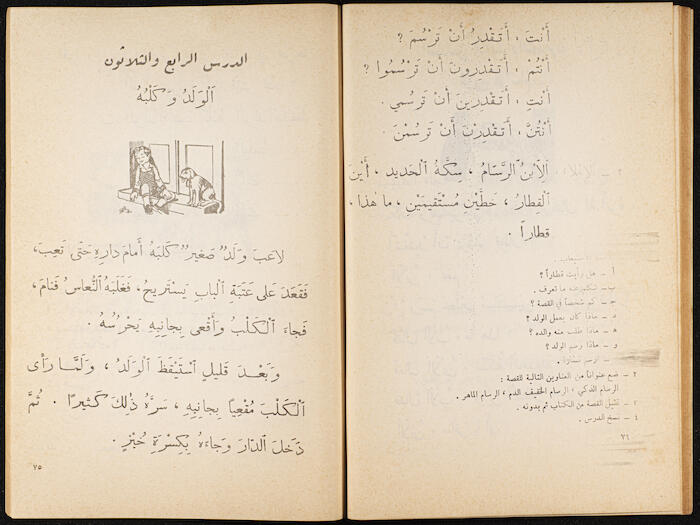 أَنْتَ ، أَتَقْدِرُ أَنْ تَرْسُمَ ؟
أَنْتُمْ ، أَتَقْدِرونَ أَنْ تَرْسُموا ؟
أَنْتِ ، أَتَقْدِرينَ أَنْ تَرْسُمي .
أَنْتُنَّ ، أَتَقْدِرْنَ أَنْ تَرْسُمْنَ .
اَلْاِبْنُ الرَّسّامُ ، سِكَّةُ الْحَديدِ ، أَيْنَ
الْقِطارُ ، خَطَّيْنِ مُسْتَقيمَيْنِ ، ما هٰذا .
قطاراً .
أ – هل رأيت قطاراً ؟
ب – تعرف .
ج – كم شخصاً في القصة ؟
د – ماذا كان يعمل الولد ؟
ه – ماذا طلب منه والده ؟
و – ماذا رسم الولد ؟
٢ – ضع عنواناً من العناوين التالية للقصة :
الرسام الذكي ، الرسام الخفيف الدم ، الرسام الماهر .
٣ – تمثيل القصة من الكتاب ثم بدونه .
٤ – نسخ الدرس .
الدرس الرابع والثلاثون
اَلْوَلَدُ وَكَلْبُهُ
لاعَبَ وَلَدٌ صَغيرٌ كَلْبَهُ أَمامَ دارِهِ حَتّى تَعِبَ ،
فَقَعَدَ عَلى عَتَبَةِ الْبابِ يَسْتَريحُ ، فَغَلَبَهُ النُّعاسُ فَنامَ ،
فَجاءَ الْكَلْبُ وَأَقْعى بِجانِبِهِ يَحْرُسُهُ .
وَبَعْدَ قَليلٍ اسْتَيْقَظَ الْوَلَدُ ، وَلَمّا رَأى
الْكَلْبَ مُقْعِياً بِجانِبِهِ ، سَرَّهُ ذٰلِكَ كَثيرًا . ثُمَّ
دَخَلَ الدّارَ وَجاءَهُ بِكِسْرَةِ خُبْزٍ .
٧٥